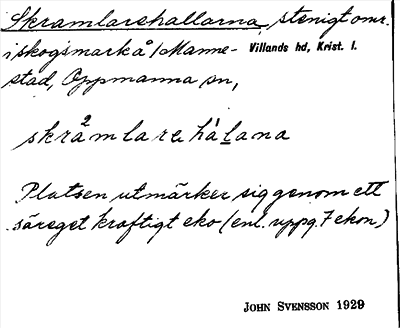 Skramlarehallarna, stenigt omr.
i skogsmark å /Manne- Villands hd, Krist. l.
stad, Oppmanna sn,
skråmlare hàlana
Platsen utmärker sig genom ett
säreget kraftigt eko (enl. uppg. 7 ekon)
JOHN SVENSSON 1929